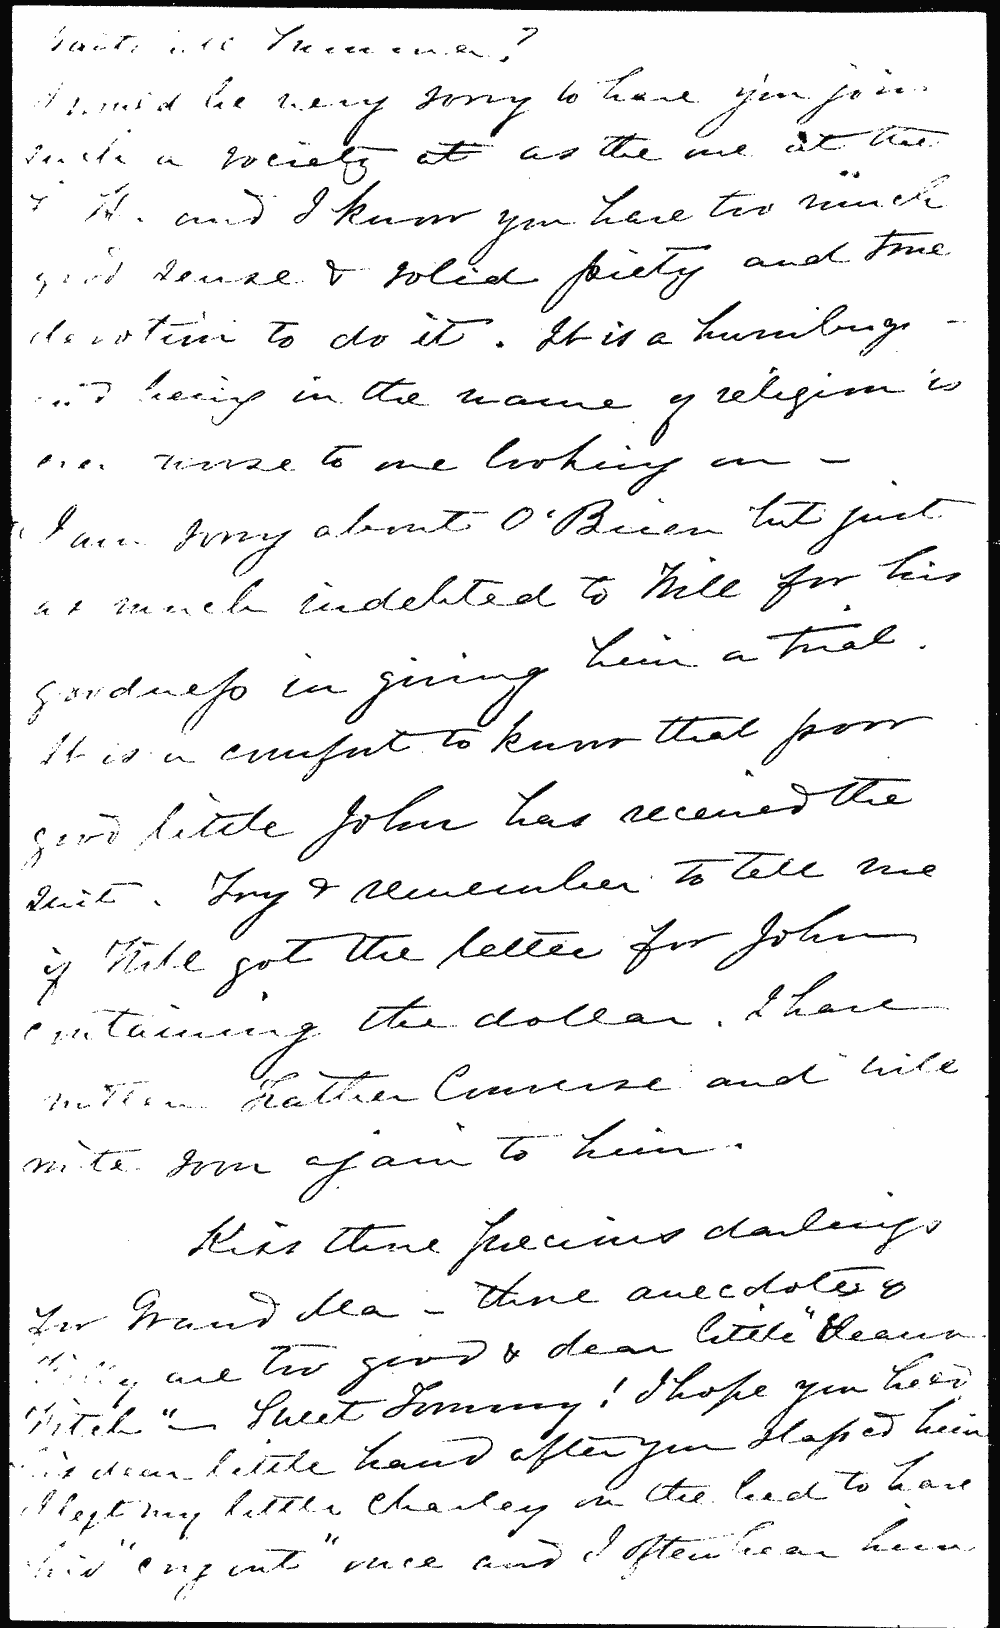 Summer?
I would be very sorry to have you join
such a society at as the one at the
H. and I know you have too much
good sense & solid piety and true
devotion to do it. It is a humbug -
and being in the name of religion is
even worse to me looking on -
I am sorry about O'Brien but just
as much indebted to Will for his
goodness in giving him a trial.
It is a comfort to know that poor
good little John has received the
suit. Try & remember to tell me
if Will got the letter for John
containing the dollar. I have
written Father Converse and will
write soon again to him.
Kiss those precious darlings
for Grand Ma - those anecdotes of
Willy are too good & dear little "
" - Sweet Tommy! I hope you
his dear little hand after you slaped him
I left my little Charley on the bed to have
his "cry out" once and I often hear him